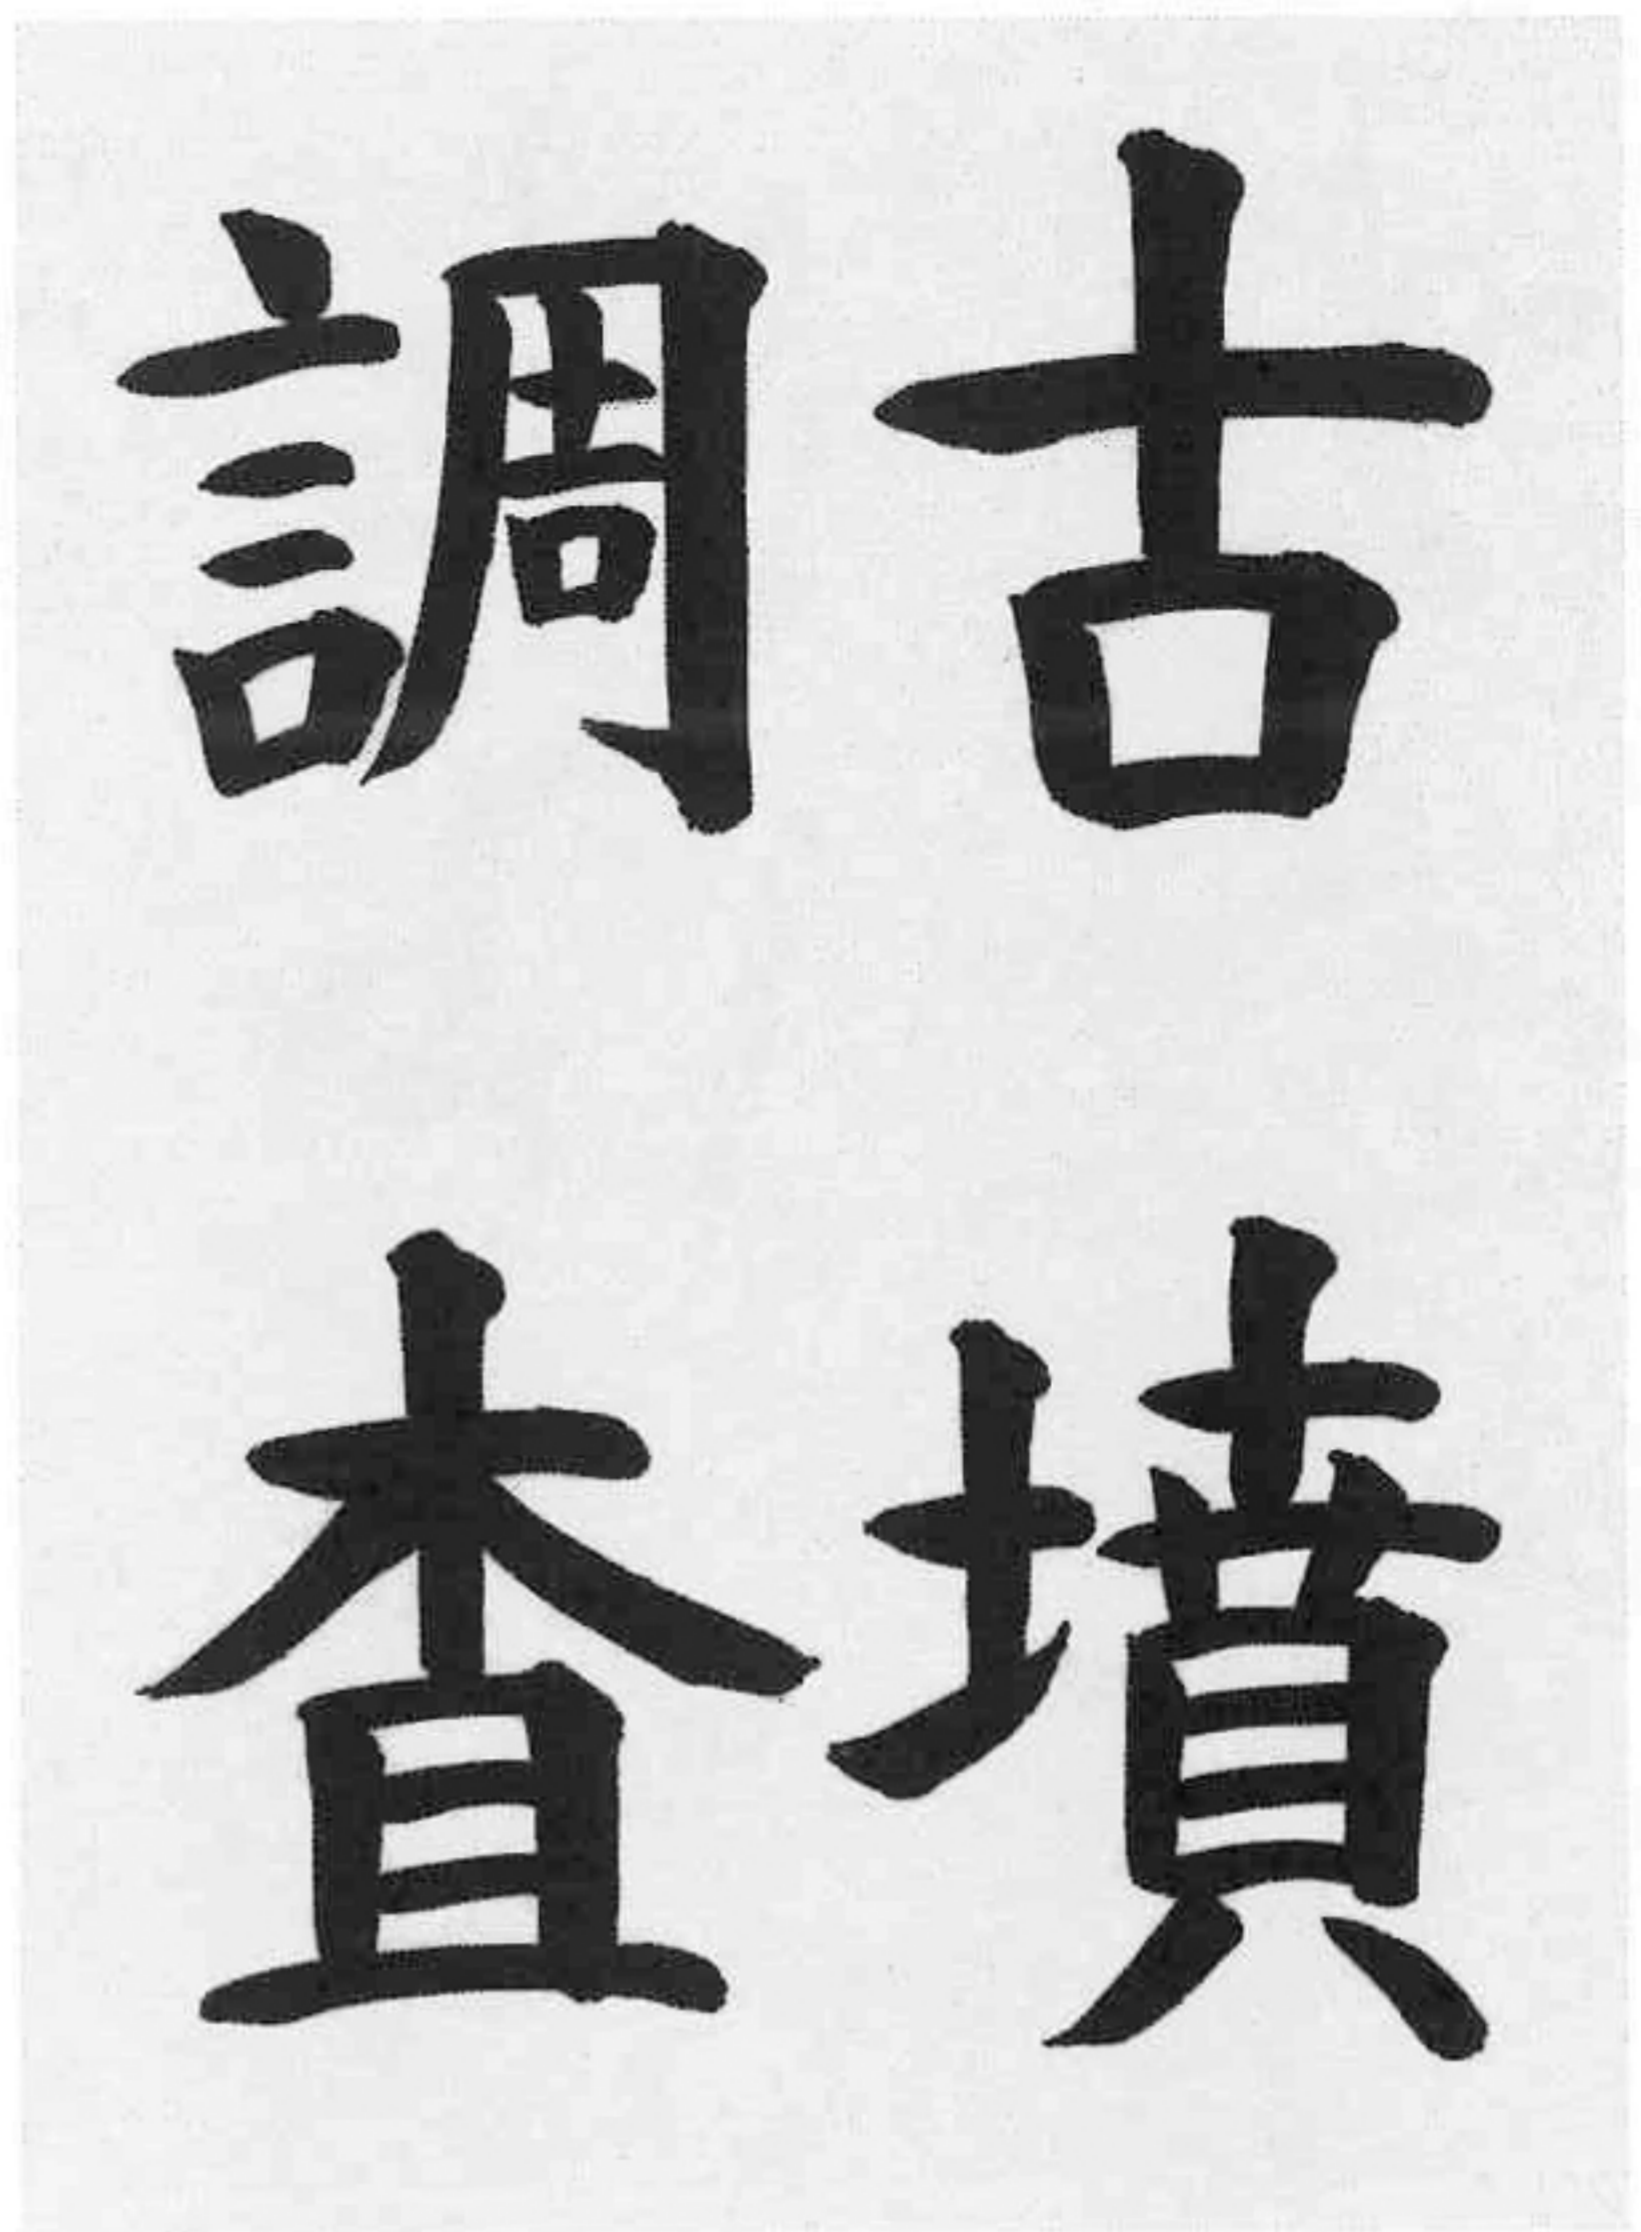 古墳
調査